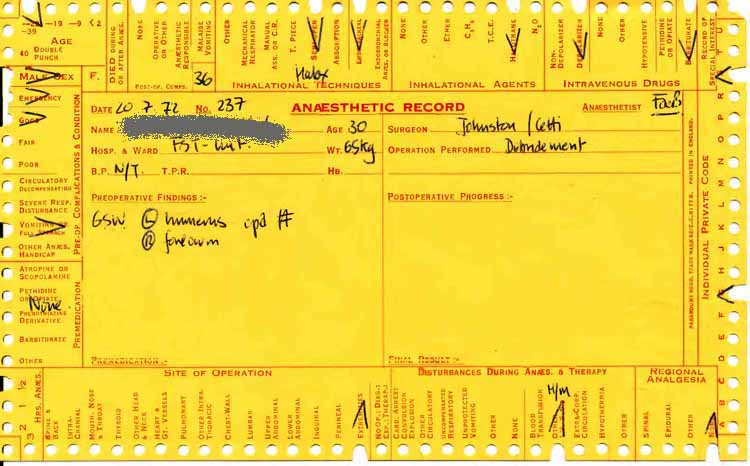 -29 -19 -9 <2
-39
AGE
40 DOUBLE PUNCH
DIED DURING OR AFTER ANÆS.
NONE
OPERATIVE OR OTHER
ANÆSTHETIC RESPONSIBLE
MALAISE VOMITING
OTHER
MECHANICAL RESPIRATOR
MAN. ASS. OR C.R.
T. PIECE
ABSORPTION
ENDOBRONCHIAL
NONE
OTHER
ETHER
C₃H₆
T.C.E.
N₂O
NON-DEPOLARIZER
DEPOLARIZER
NONE
OTHER
HYPOTENSIVE
PETHIDINE OR OPIATE
BARBITURATE
RECORD OF SPECIAL INTEREST
MALE SEX F.
POST-OP. COMPS.
36
Halox
INHALATIONAL TECHNIQUES
INHALATIONAL AGENTS
INTRAVENOUS DRUGS
DATE 20.7.72 NO. 237
ANÆSTHETIC RECORD
ANÆSTHETIST
NAME
AGE 30
SURGEON Johnston / Cetti
HOSP. & WARD
WT. 65kg
OPERATION PERFORMED Debridement
B.P. N/T. T.P.R.
HB.
PREOPERATIVE FINDINGS :-
POSTOPERATIVE PROGRESS :-
GSW (L) humerus cpd #
(R) forearm
PREMEDICATION :-
FINAL RESULT :-
EMERGENCY
GOOD
FAIR
POOR
CIRCULATORY DECOMPENSATION
SEVERE RESP. DISTURBANCE
VOMITING OR FULL STOMACH
OTHER ANÆS. HANDICAP
PRE-OP. COMPLICATIONS & CONDITION
ATROPINE OR SCOPOLAMINE
PETHIDINE OR OPIATE
None
PHENOTHIAZINE DERIVATIVE
BARBITURATE
OTHER
PREMEDICATION
PRINTED IN ENGLAND.
INDIVIDUAL PRIVATE CODE
A B C D E F G H J K L M N O P R S T U
SITE OF OPERATION
DISTURBANCES DURING ANÆS. & THERAPY
REGIONAL ANALGESIA
HRS. ANÆS.
½ 1 2 3
SPINE & BACK
INTRA-CRANIAL
MOUTH, NOSE & THROAT
THYROID
OTHER HEAD & NECK
HEART & GT. VESSELS
PULMONARY
OTHER INTRA-THORACIC
CHEST-WALL
LUMBAR
UPPER ABDOMINAL
LOWER ABDOMINAL
INGUINAL
PERINEAL
EXTREMITIES
CARD. ARREST
CONVULSION EXPLOSION
OTHER CIRCULATORY
UNCOMPENSATED RESPIRATORY
UNPROTECTED VOMITING
OTHER
NONE
BLOOD TRANSFUSION
H/m
EXTRA-CORP. CIRCULATION
HYPOTHERMIA
OTHER
SPINAL
EPIDURAL
OTHER